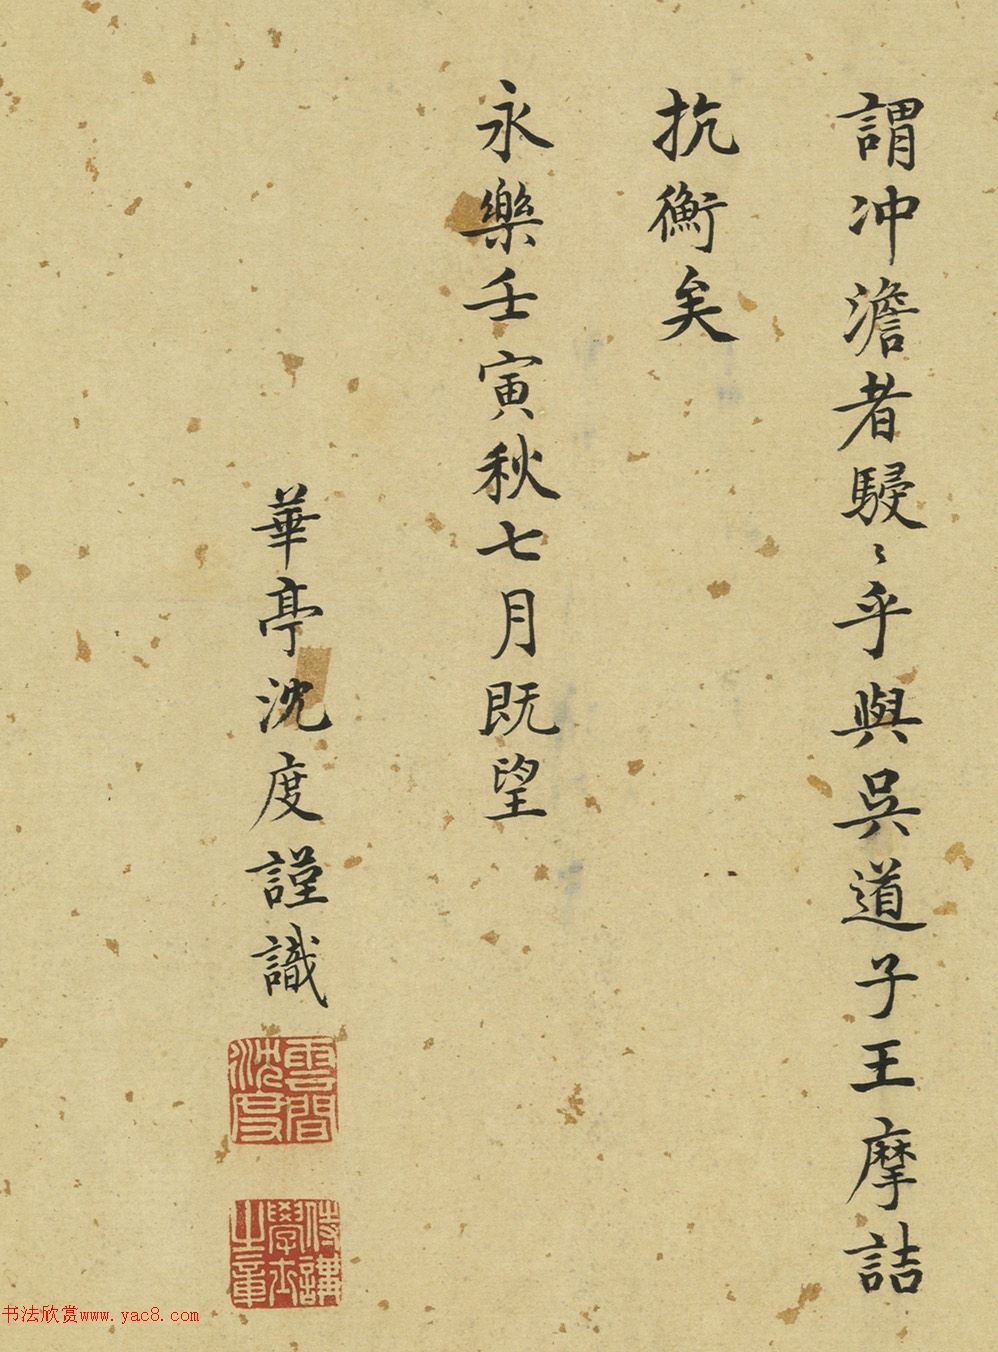 謂冲澹者駸〻乎與吳道子王摩詰
抗衡矣
永樂壬寅秋七月既望
華亭沈度謹識
雲間沈度
侍講學士之章
书法欣赏www.yac8.com